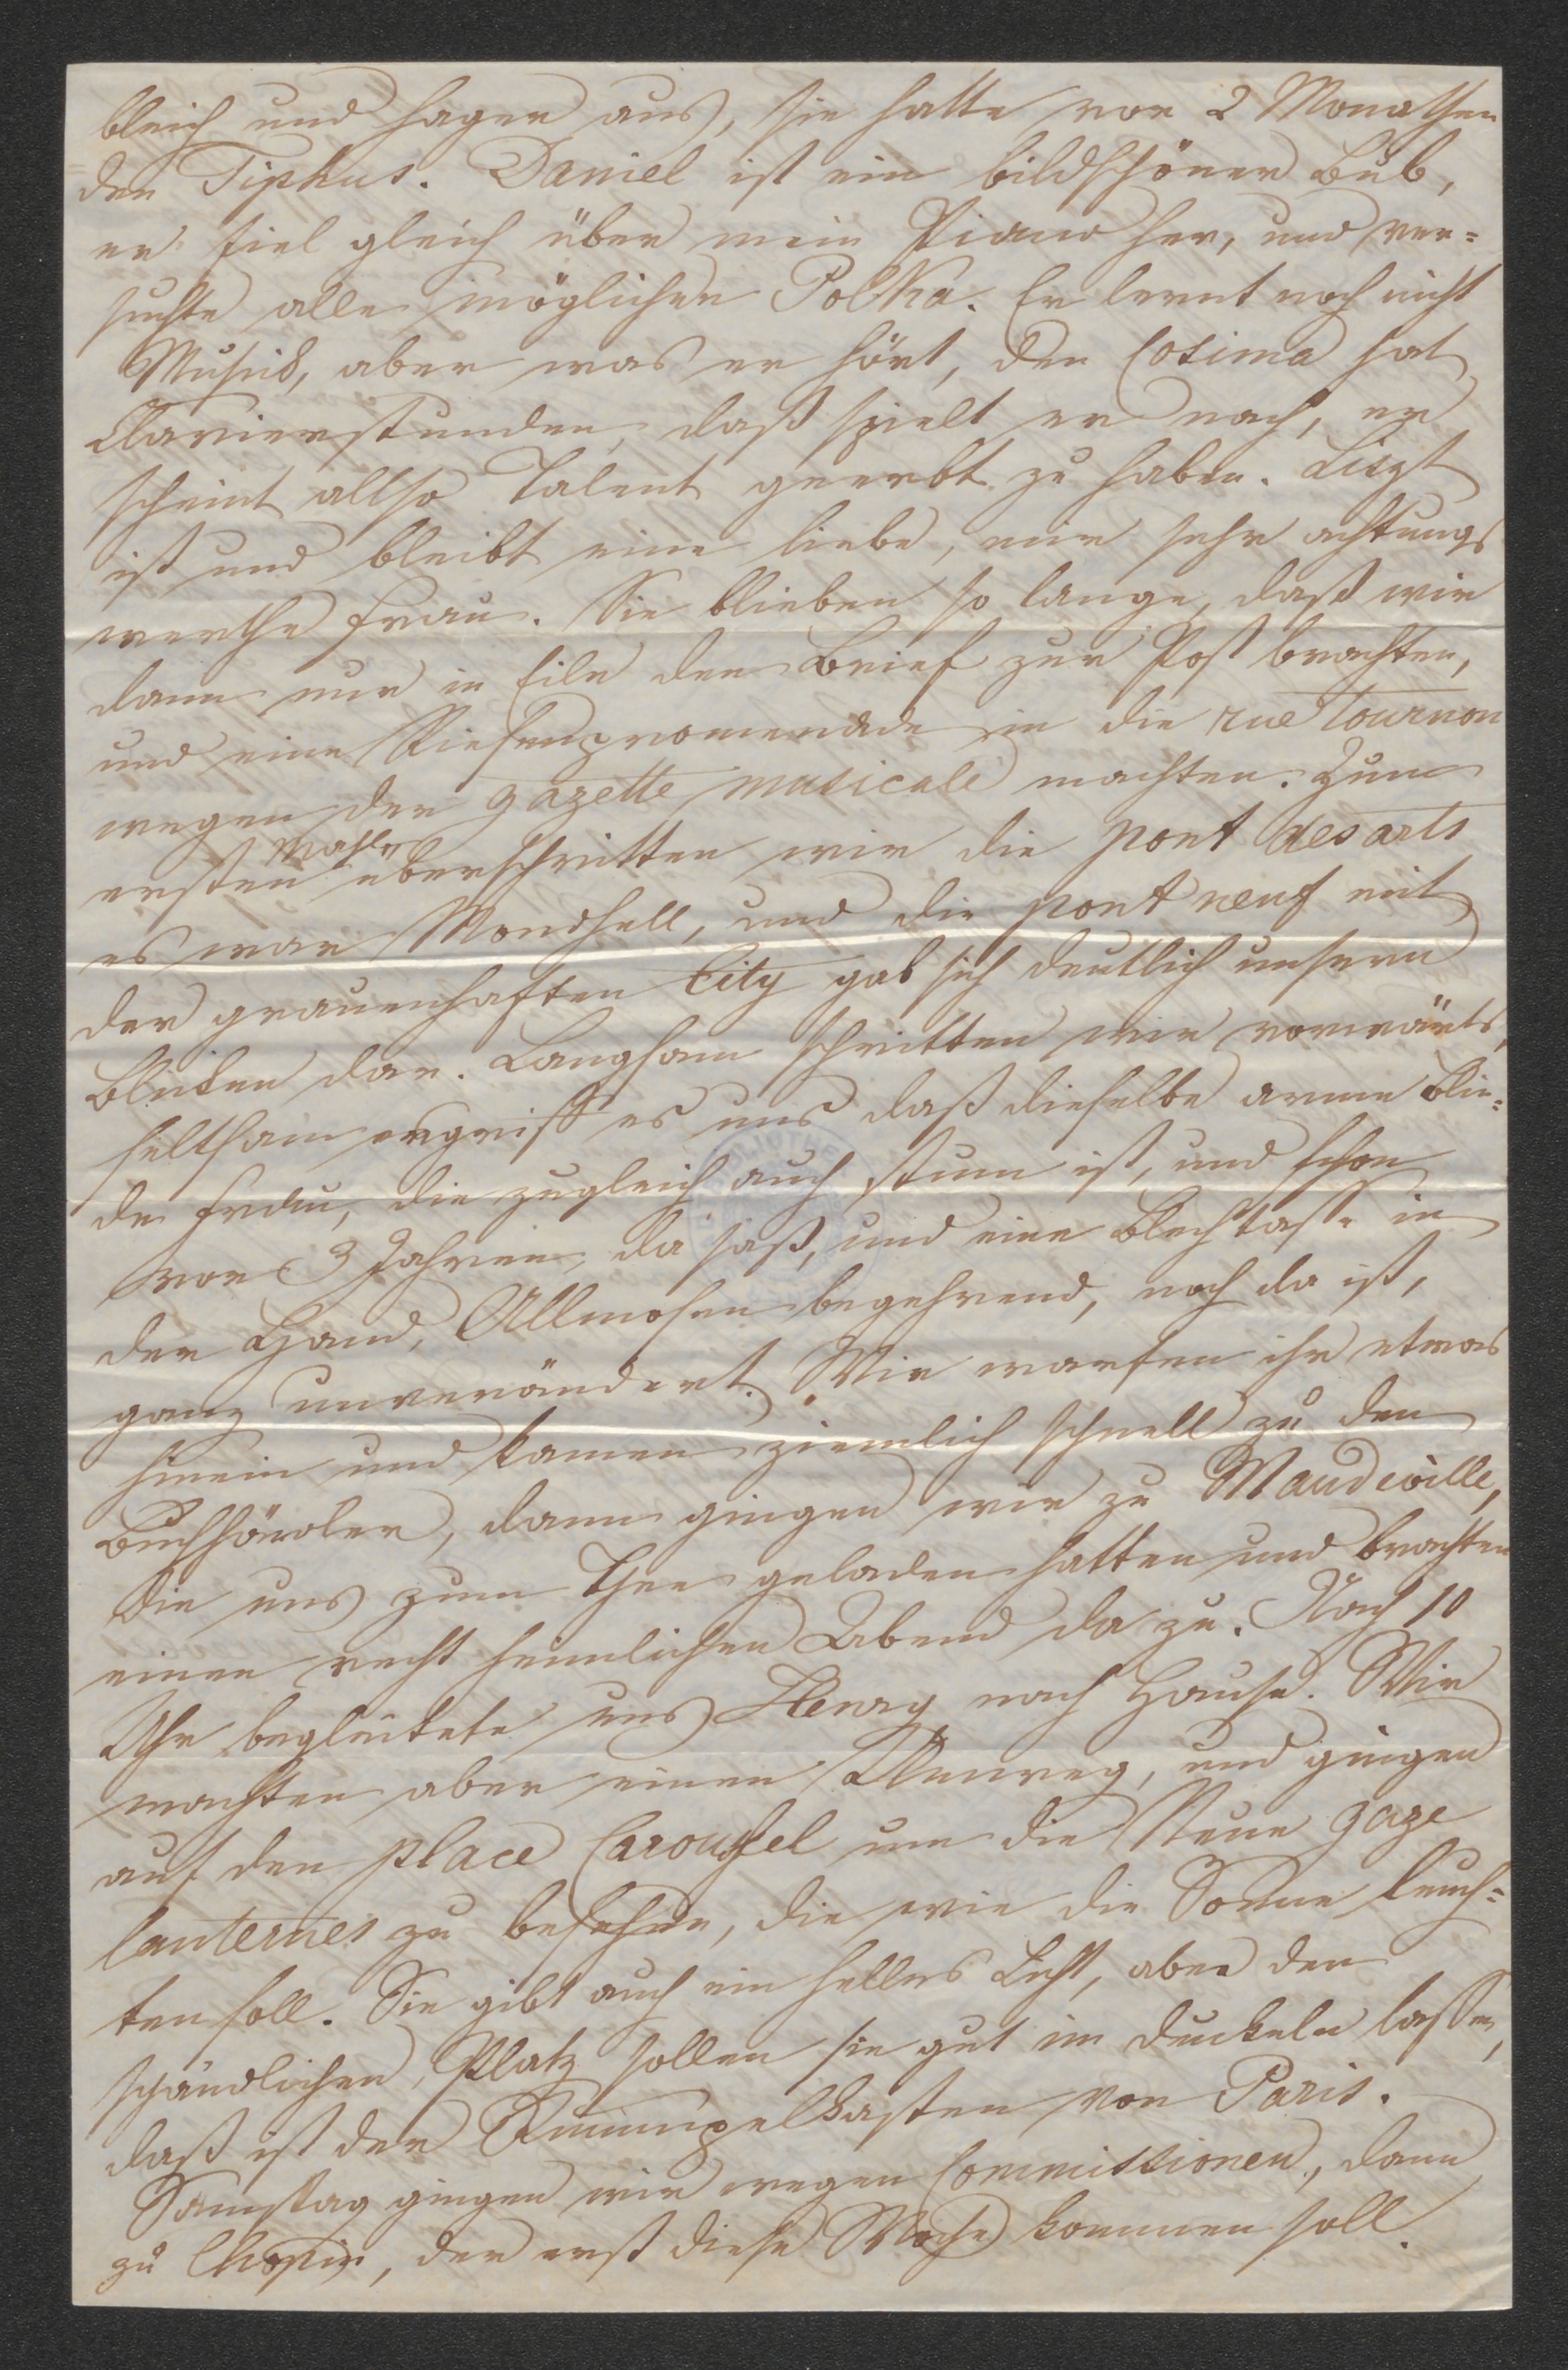 bleich und hager aus, sie hatte vor 2 Monathen
den Tiphus. Daniel ist ein bildschöner Bub,
er fiel gleich über mein Piano her, und ver=
suchte alle möglichen Polka. Er lernt noch nicht
Musick, aber was er hört, den Cosima hat
Clavierstunden, daß spielt er nach, er
scheint allso Talent geerbt zu haben. Liszt
ist und bleibt eine liebe, mir sehr achtungs
werthe Frau. Sie blieben so lange, daß wir
dann nur in Eile den Brief zur Post brachten,
und eine Riesenpromenade in die rue Tournon
wegen der gazette musicale machten. Zum
ersten Mahle überschritten wir die pont des arts
es war Mondhell, und die pont neuf mit
der grauenhaften City gab sich deutlich unsern
Blicken dar. Langsam schritten wir vorwärts,
seltsam ergriff es uns daß dieselbe arme Blin=
de Frau, die zugleich auch stum ist, und schon
vor 3 Jahren da saß, und eine Blechtasse in
der Hand, Allmosen begehrend, noch da ist,
ganz unverändert. Wir warfen ihr etwas
hinein und kamen ziemlich schnell zu den
Buchhändler, dann gingen wir zu Mandeville,
die uns zum Thee geladen hatten und brachten
einen recht heimlichen Abend da zu. Nach 10
Uhr begleitete uns Henry nach Hause. Wir
machten aber einen Umweg, und gingen
auf den place Caroussel um die Neue gaze
lanternes zu besehen, die wie die Sonne leuch=
ten soll. Sie gibt auch ein helles Licht, aber den
schändlichen Platz sollen sie gut im Dunkeln lassen,
daß ist der Rumpelkasten von Paris.
Samstag gingen wir wegen Commissionen, dann
zu Chopin, der erst diese Woche kommen soll.